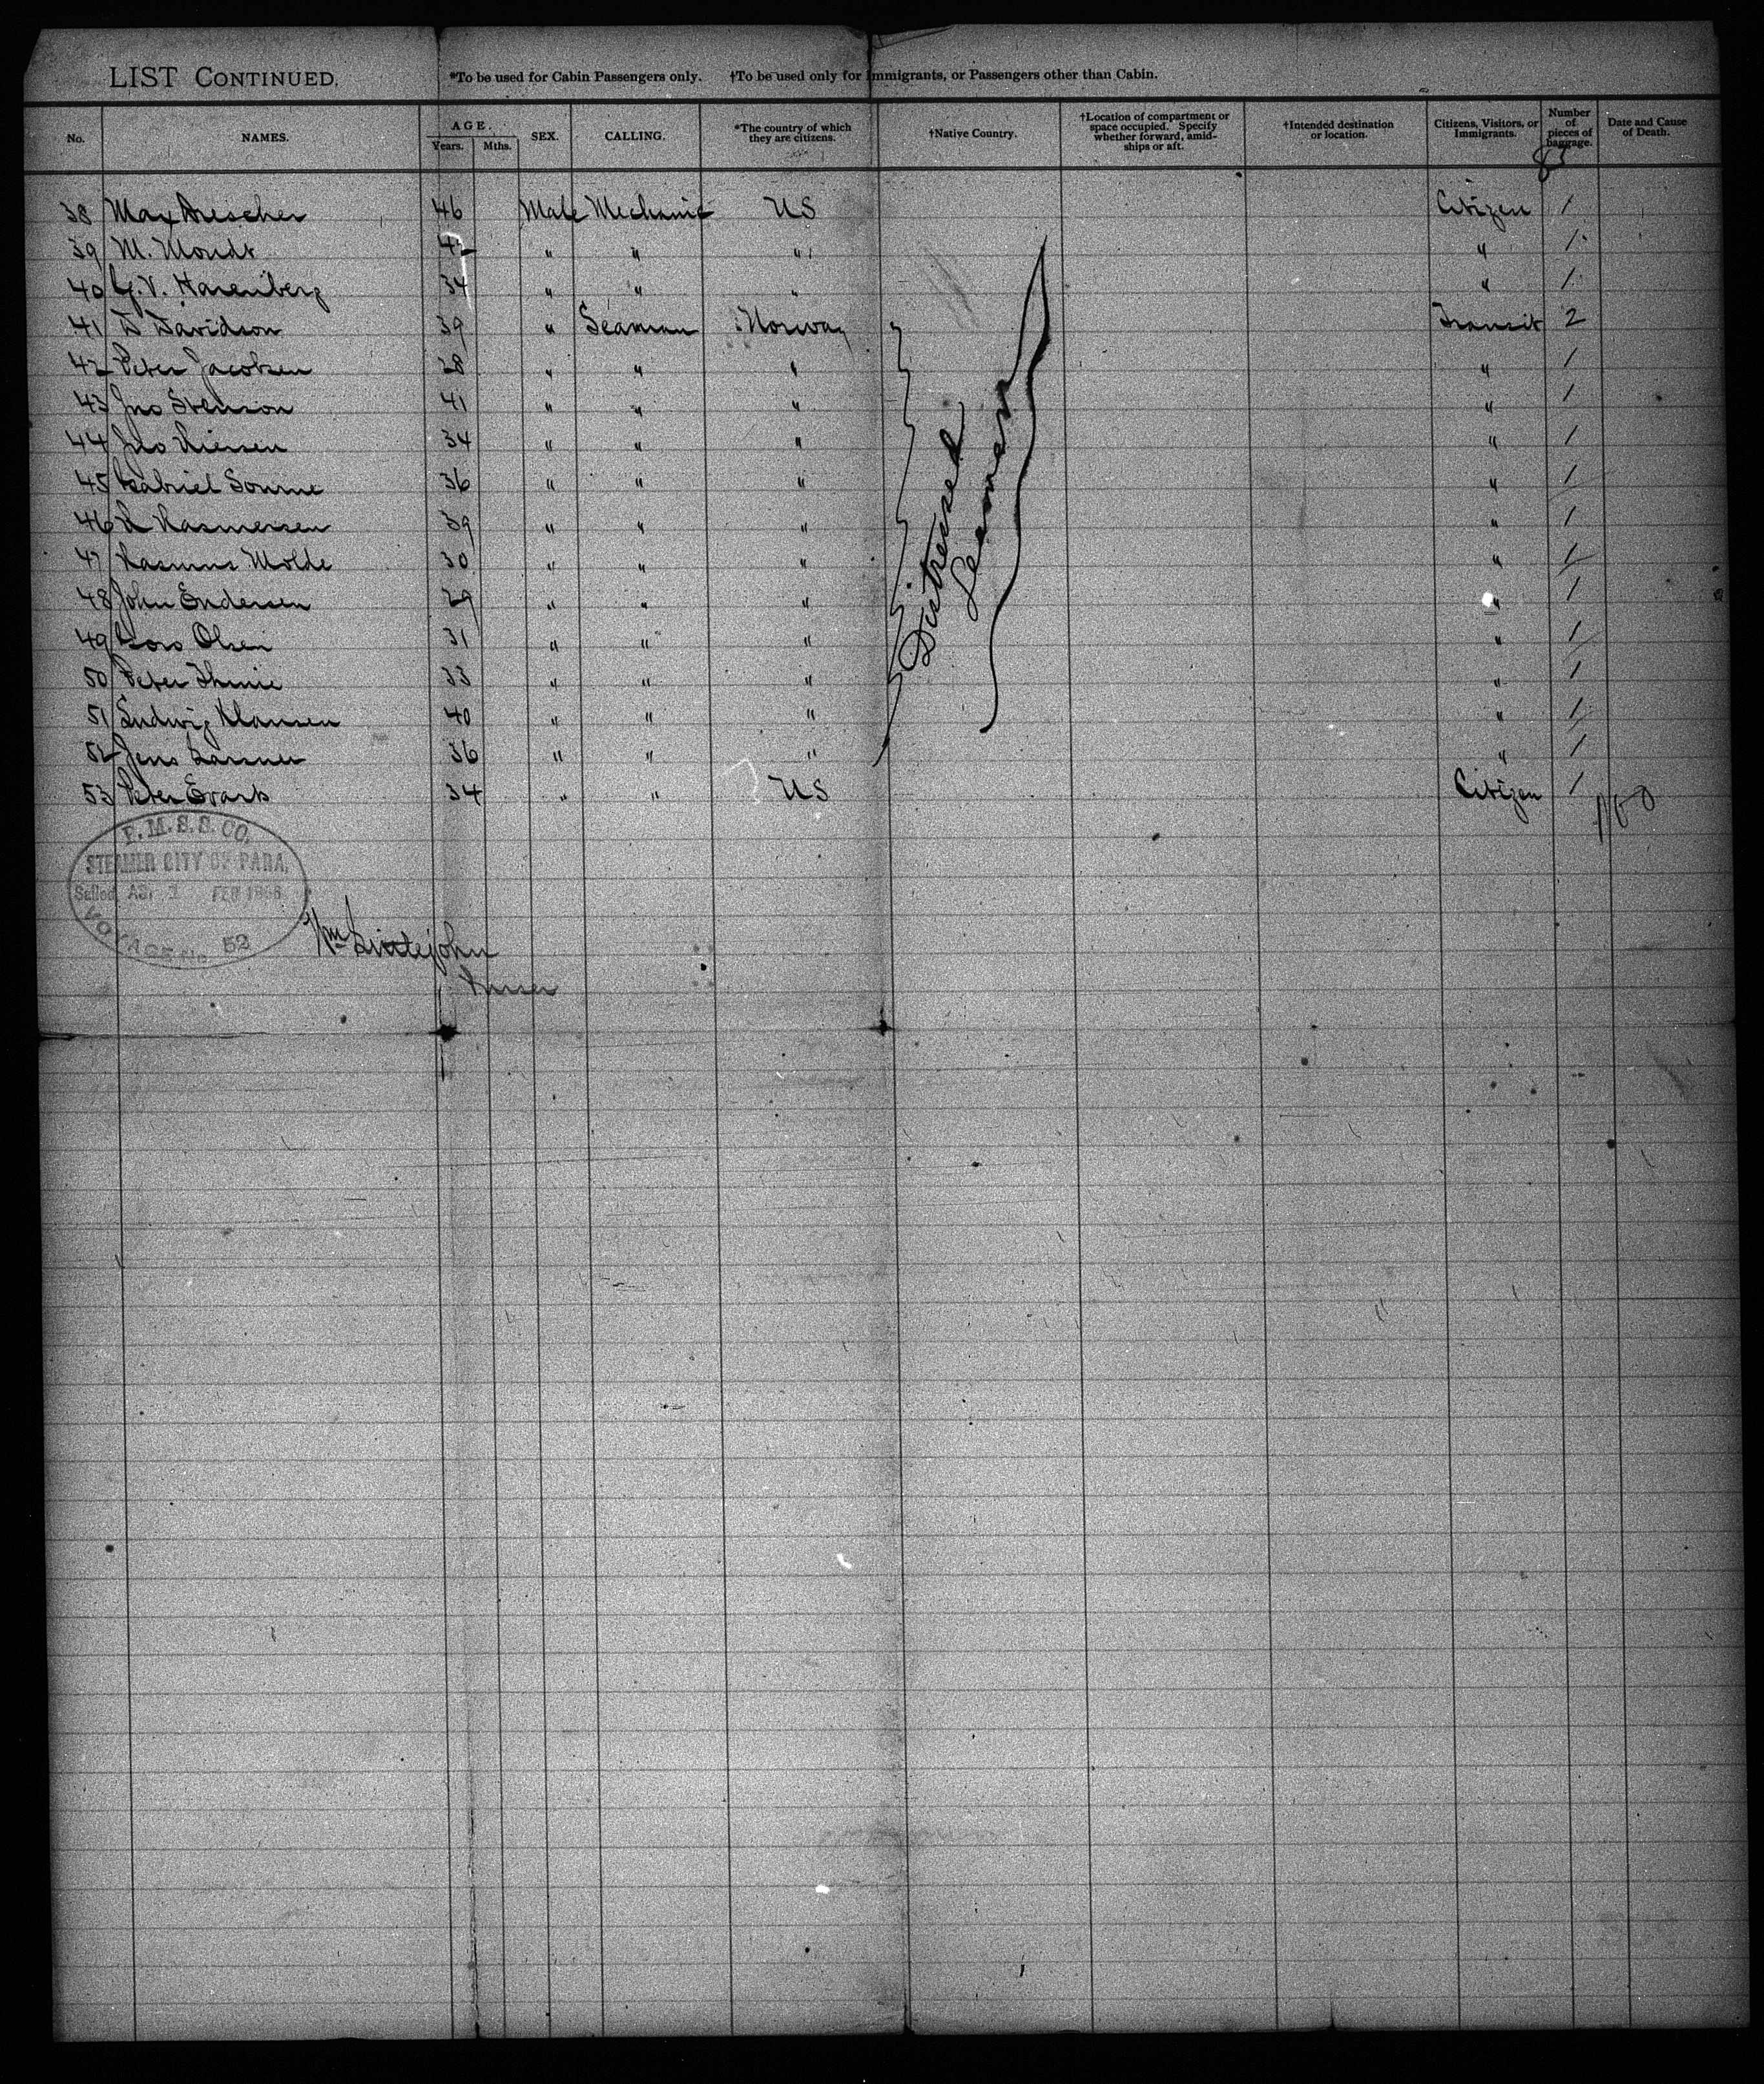 LIST CONTINUED. *To be used for Cabin Passengers only. †To be used only for Immigrants, or Passengers other than Cabin.
No. NAMES. AGE. Years. Mths. SEX. CALLING. *The country of which they are citizens. †Native Country. †Location of compartment or space occupied. Specify whether forward, amidships or aft. †Intended destination or location. Citizens, Visitors, or Immigrants. Number of pieces of baggage. Date and Cause of Death.
83
38 Max Drescher 46 Male Mechanic US Citizen 1
39 M. Mondt 42 " " " " 1
40 G. V. Harenberg 34 " " " " 1
41 D Davidson 39 " Seaman Norway Transit 2
42 Peter Jacobsen 28 " " " " 1
43 Jno Stenson 41 " " " " 1
44 Jno 34 " " " " 1
45 Gabriel 36 " " " " 1
46 Rasmersen 39 " " " " 1
47 Rasmus Molde 30 " " " " 1
48 John Endersen 29 " " " " 1
49 Olsen 31 " " " " 1
50 Peter 33 " " " " 1
51 Ludwig Klausen 40 " " " " 1
52 Jens 36 " " " " 1
53 Peter Evarts 34 " " US Citizen 1
Distressed
Seaman
100
P. M. S. S. CO.
STEAMER CITY OF PARA,
Sailed AS. 1 FEB
VOYAGE No. 52
Wm Littlejohn
Purser